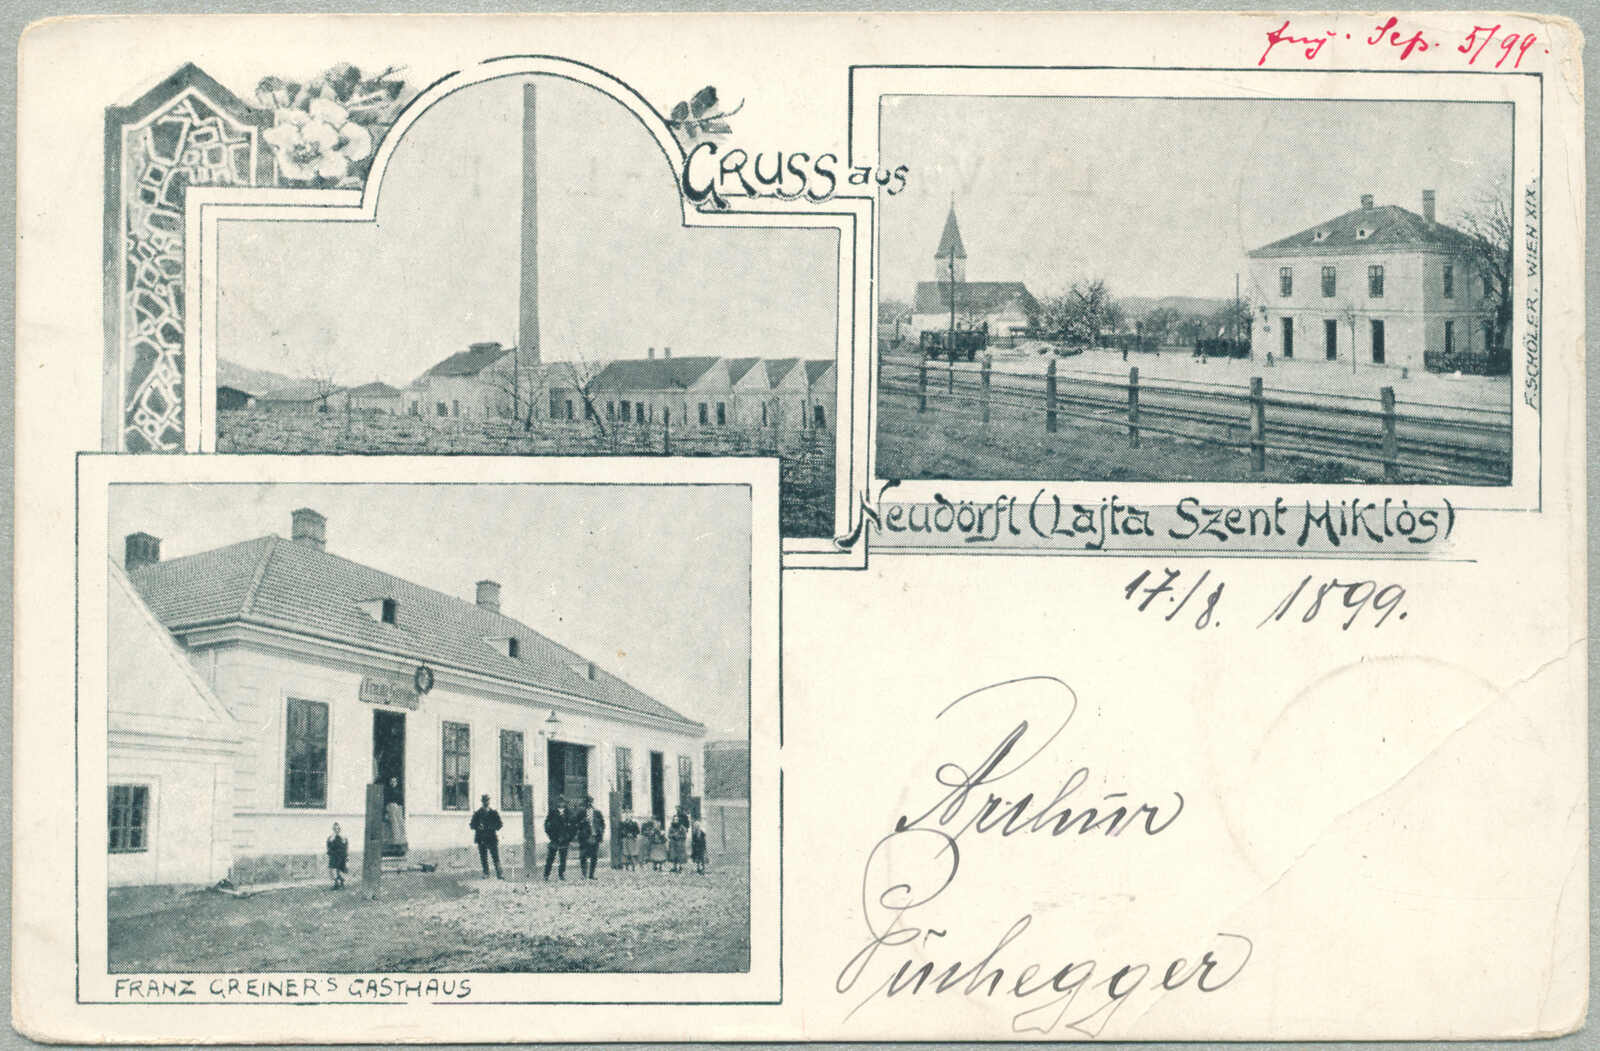 Sep. 5/99.
GRUSS aus
F. SCHÖLER. WIEN XIX.
Neudörfl (Lajta Szent Miklós)
17./8. 1899.
Arthur
Puchegger
FRANZ GREINER'S GASTHAUS